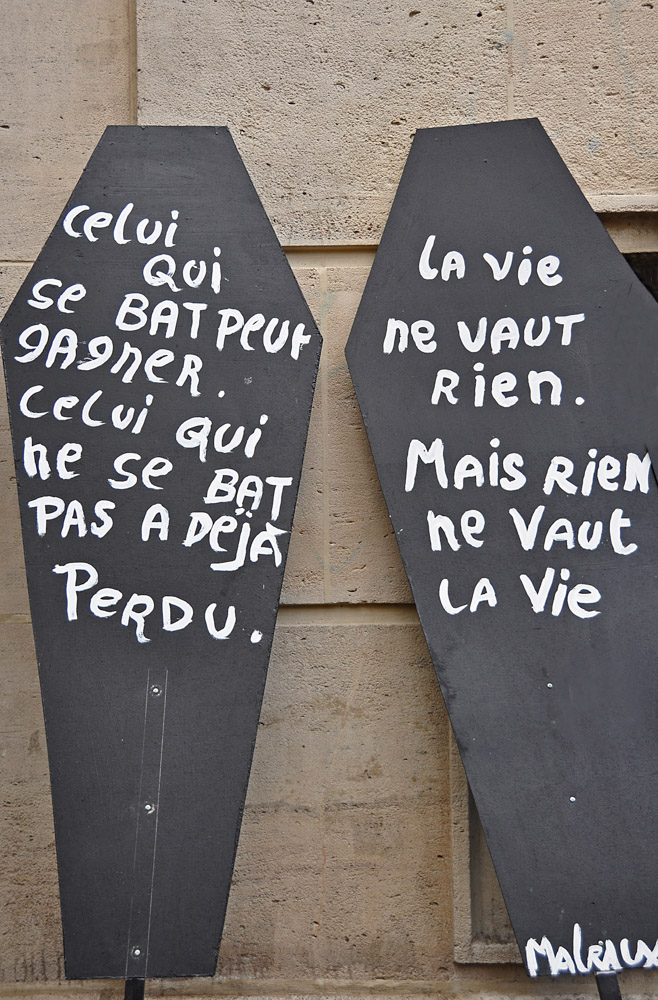 celui
qui
se BAT peut
gAgner.
celui qui
ne se BAT
PAS A DéJÀ
PERDU.
LA vie
ne VAUT
Rien.
MAis Rien
ne VAut
LA Vie
MALRAUX